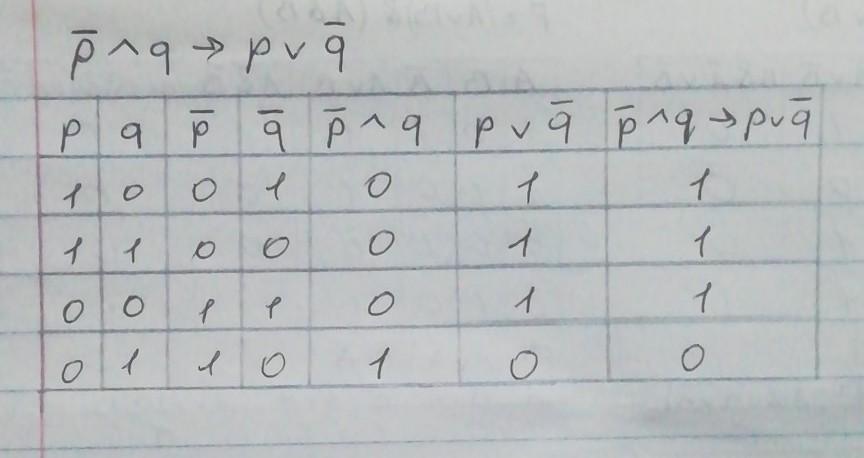 p̅ ∧ q → p ∨ q̅
p q p̅ q̅ p̅ ∧ q p ∨ q̅ p̅ ∧ q → p ∨ q̅
1 0 0 1 0 1 1
1 1 0 0 0 1 1
0 0 1 1 0 1 1
0 1 1 0 1 0 0